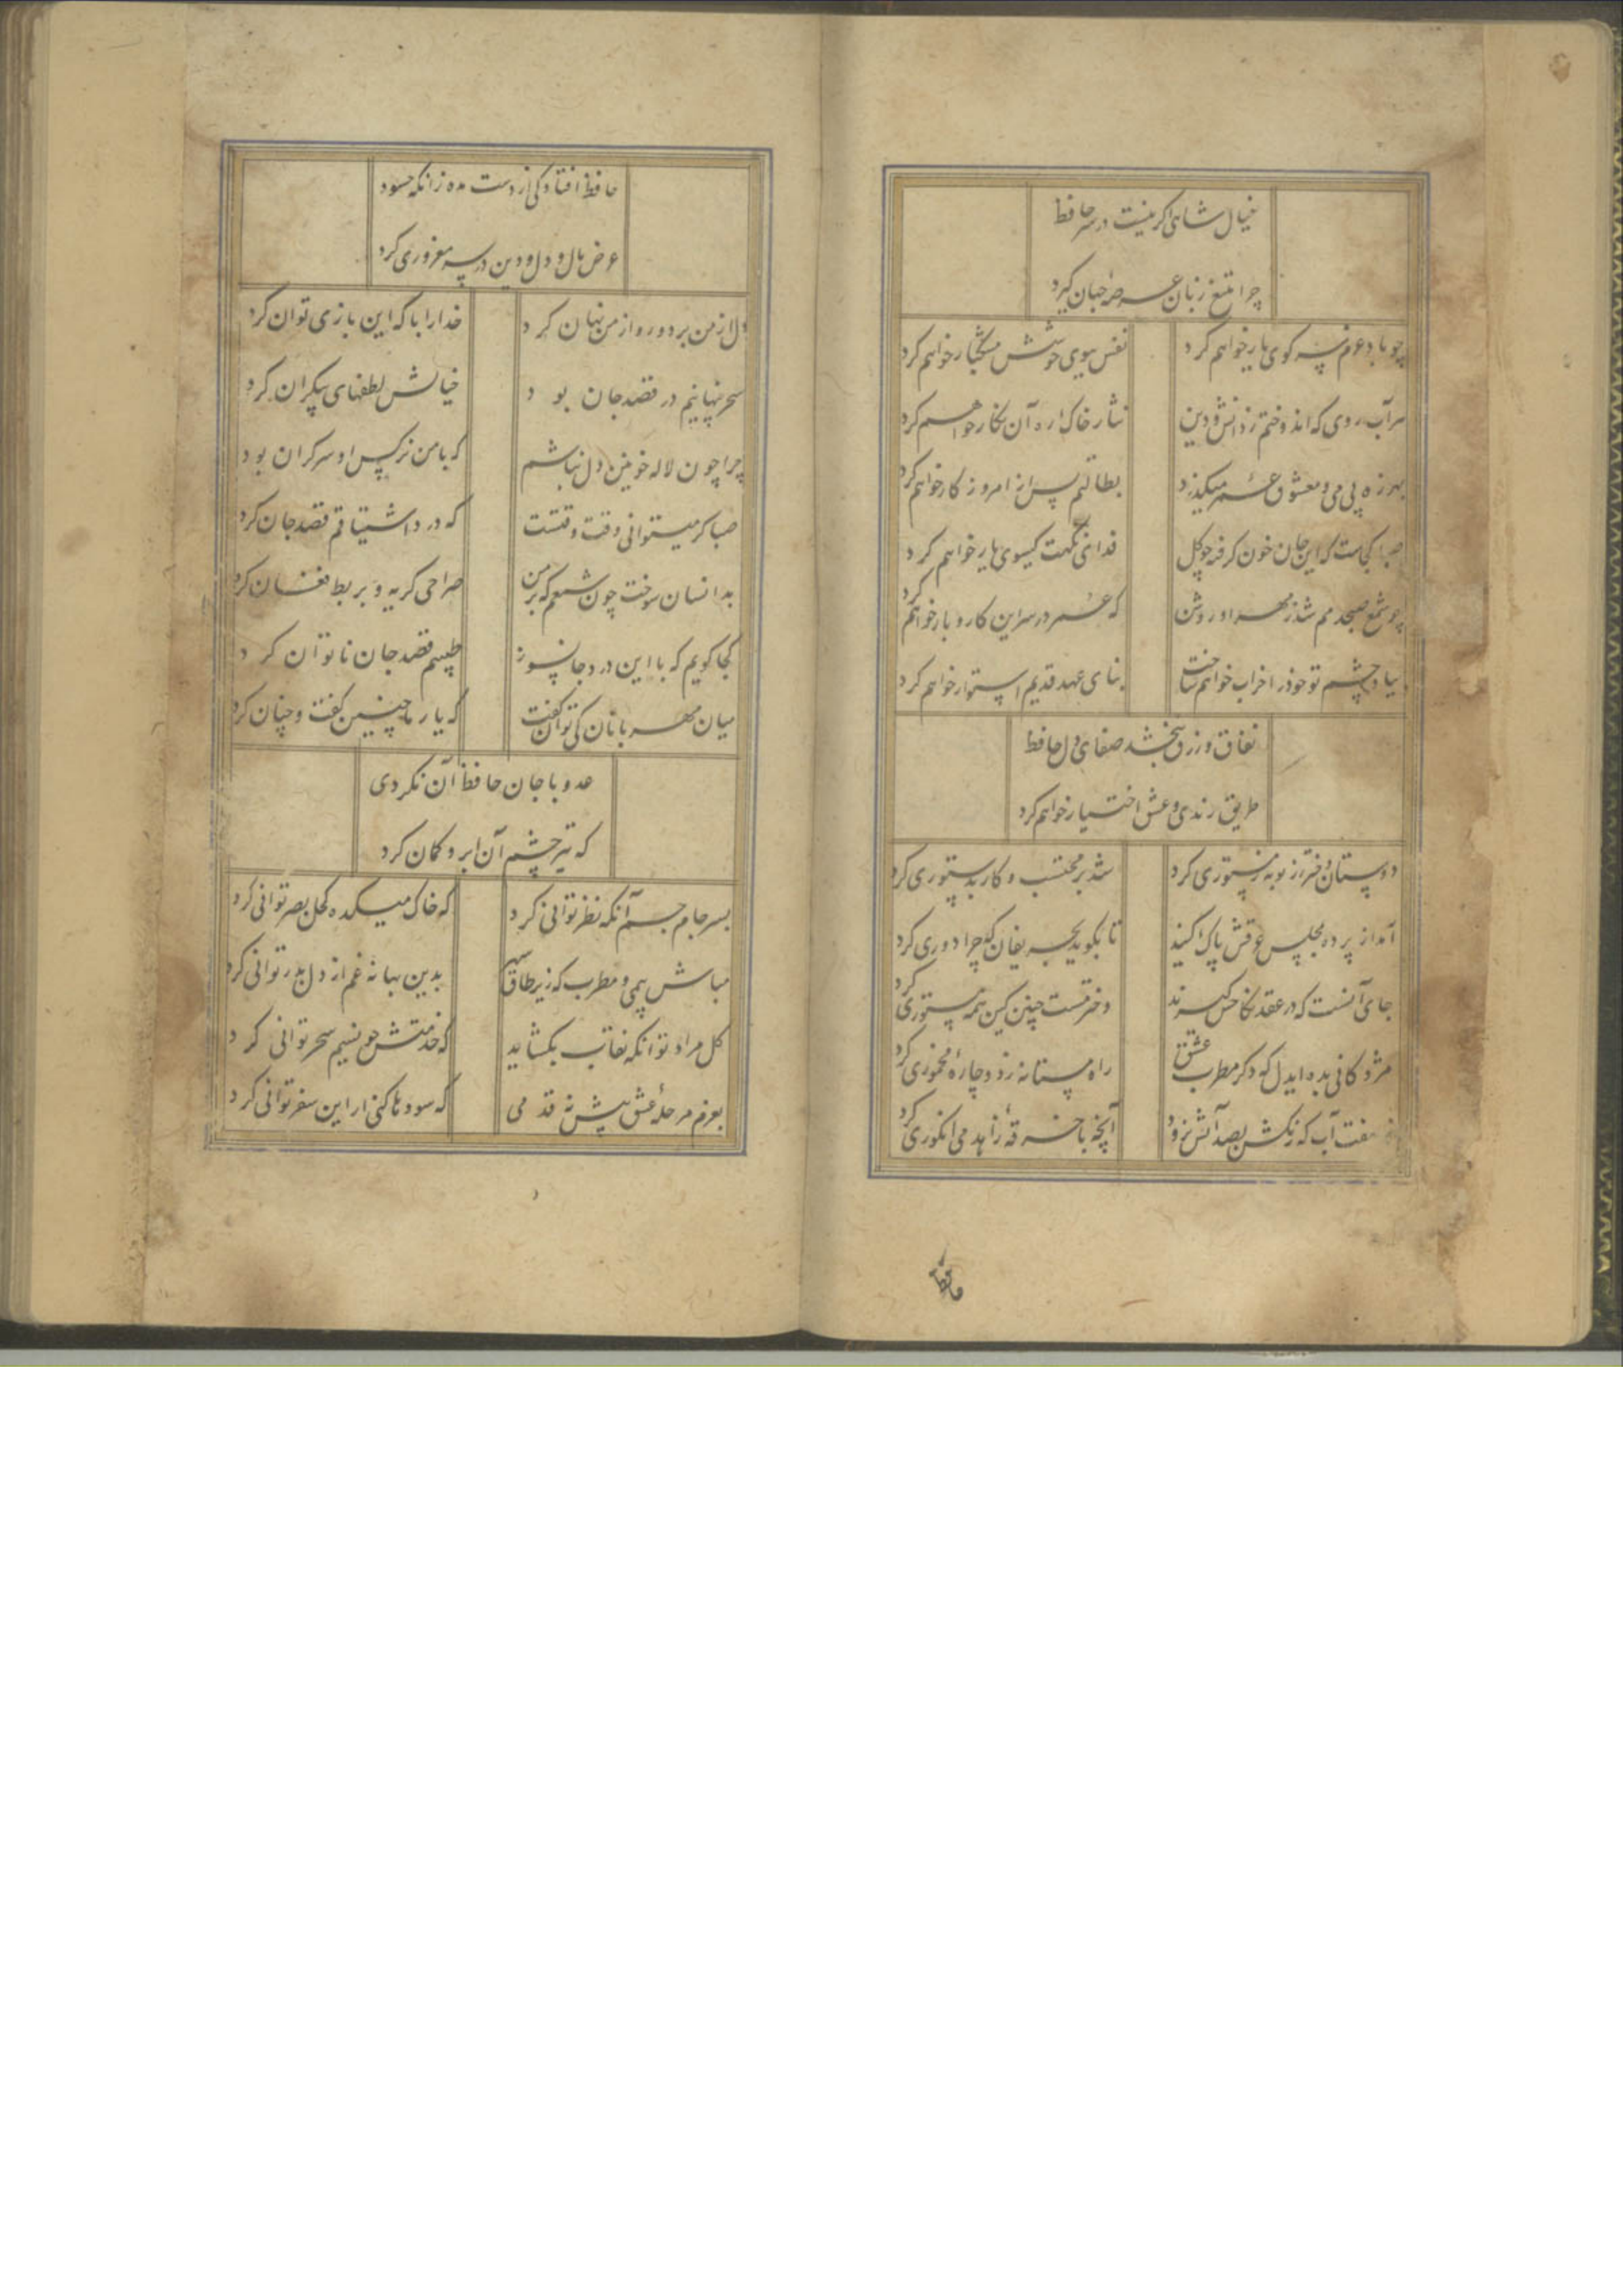 خیال شاهی اگر نیست در سر حافظ
چرا بتیغ زبان عرصه جهان کیرد
چو باد عزم سر کوی یار خواهم کرد
نفس ببوی خوشش مشکبار خواهم کرد
هر آب روی که اندوختم ز دانش و دین
نثار خاک ره آن نکار خواهم کرد
بهرزه بی می و معشوق عمر میکذرد
بطالتم بس از امروز کار خواهم کرد
صبا کجاست که این جان خون کرفته چو کل
فدای نکهت کیسوی یار خواهم کرد
چو شمع صبحدمم شد ز مهر او روشن
که عمر در سر این کار و بار خواهم کرد
بیاد چشم تو خود را خراب خواهم ساخت
بنای عهد قدیم استوار خواهم کرد
نفاق و زرق نبخشد صفای دل حافظ
طریق رندی و عشق اختیار خواهم کرد
دوستان دختر رز توبه ز مستوری کرد
شد بر محتسب و کار بدستوری کرد
آمد از پرده بمجلس عرقش پاک کنید
تا بکوید بحریفان که چرا دوری کرد
جای آنست که در عقد نکاحش کیرند
دختر مست چنین کین همه مستوری کرد
مژدکانی بده ایدل که دکر مطرب عشق
راه مستانه زد و چاره مخموری کرد
نه بهفت آب که رنکش بصد آتش نرود
آنچه با خرقه زاهد می انکوری کرد
حافظ
حافظ افتادکی از دست مده زانکه حسود
عرض و مال و دل و دین در سر مغروری کرد
دل از من برد و روی از من نهان کرد
خدا را با که این بازی توان کرد
سحر تنهاییم در قصد جان بود
خیالش لطفهای بیکران کرد
چرا چون لاله خونین دل نباشم
که با من نرکس او سرکران بود
صبا کر میتوانی وقت وقتست
که درد اشتیاقم قصد جان کرد
بدانسان سوخت چون شمعم که بر من
صراحی کریه و بربط فغان کرد
کجا کویم که با این درد جانسوز
طبیبم قصد جان ناتوان کرد
میان مهربانان کی توان کفت
که یار ما چنین کفت و چنان کرد
عدو با جان حافظ آن نکردی
که تیر چشم آن ابرو کمان کرد
بسر جام جم آنکه نظر توانی کرد
که خاک میکده کحل بصر توانی کرد
مباش بی می و مطرب که زیر طاق سپهر
بدین بهانه غم از دل بدر توانی کرد
کل مراد تو آنکه نقاب بکشاید
که خدمتش چو نسیم سحر توانی کرد
بعزم مرحله عشق پیش نه قدمی
که سودها کنی ار این سفر توانی کرد